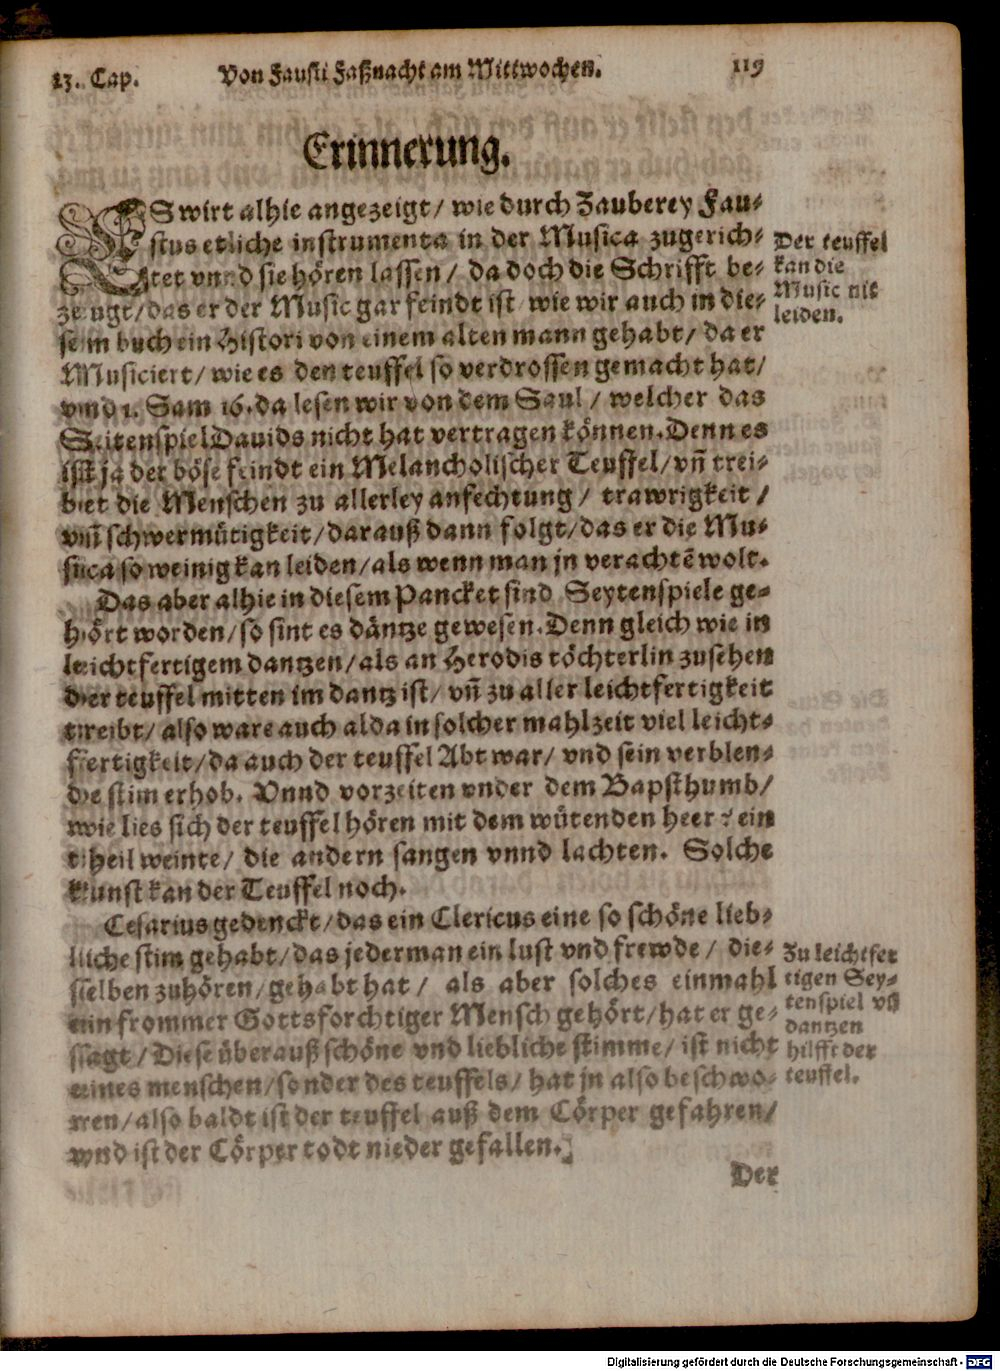 23. Cap. Von Fausti Faßnacht am Mittwochen. 119
Erinnerung.
ES wirt alhie angezeigt/ wie durch Zauberey Fau-
stus etliche instrumenta in der Musica zugerich-
tet vnnd sie hören lassen/ da doch die Schrifft be-
zeugt/ das er der Music gar feindt ist wie wir auch in die-
sem buch ein Histori von einem alten mann gehabt/ da er
Musiciert/ wie es den teuffel so verdrossen gemacht hat/
vnnd 1. Sam 16. da lesen wir von dem Saul/ welcher das
Seitenspiel Dauids nicht hat vertragen können. Denn es
ist ja der böse feindt ein Melancholischer Teuffel/ vñ trei-
bet die Menschen zu allerley anfechtung/ trawrigkeit/
vnñ schwermütigkeit/ darauß dann folgt/ das er die Mu-
sica so weinig kan leiden/ als wenn man jn verachtē wolt.
Der teuffel
kan die
Music nit
leiden.
Das aber alhie in diesem Pancket sind Seytenspiele ge-
hört worden/ so sint es däntze gewesen. Denn gleich wie in
leichtfertigem dantzen/ als an Herodis töchterlin zusehen
der teuffel mitten im dantz ist/ vñ zu aller leichtfertigkeit
treibt/ also ware auch alda in solcher mahlzeit viel leicht-
fertigkeit/ da auch der teuffel Abt war/ vnd sein verblen-
de stim erhob. Vnnd vorzeiten vnder dem Bapsthumb/
wie lies sich der teuffel hören mit dem wütenden heer? ein
theil weinte/ die andern sangen vnnd lachten. Solche
kunst kan der Teuffel noch.
Cesarius gedenckt/ das ein Clericus eine so schöne lieb-
liche stim gehabt/ das jederman ein lust vnd frewde/ die-
selben zuhören/ gehabt hat/ als aber solches einmahl
ein frommer Gottsforchtiger Mensch gehört/ hat er ge-
sagt/ Diese überauß schöne vnd liebliche stimme/ ist nicht
eines menschen/ sonder des teuffels/ hat jn also beschwo-
ren/ also baldt ist der teuffel auß dem Cörper gefahren/
vnd ist der Cörper todt nieder gefallen.
Zu leichtfer
tigen Sey-
tenspiel vñ
dantzen
hilfft der
teuffel.
Der
Digitalisierung gefördert durch die Deutsche Forschungsgemeinschaft - DFG